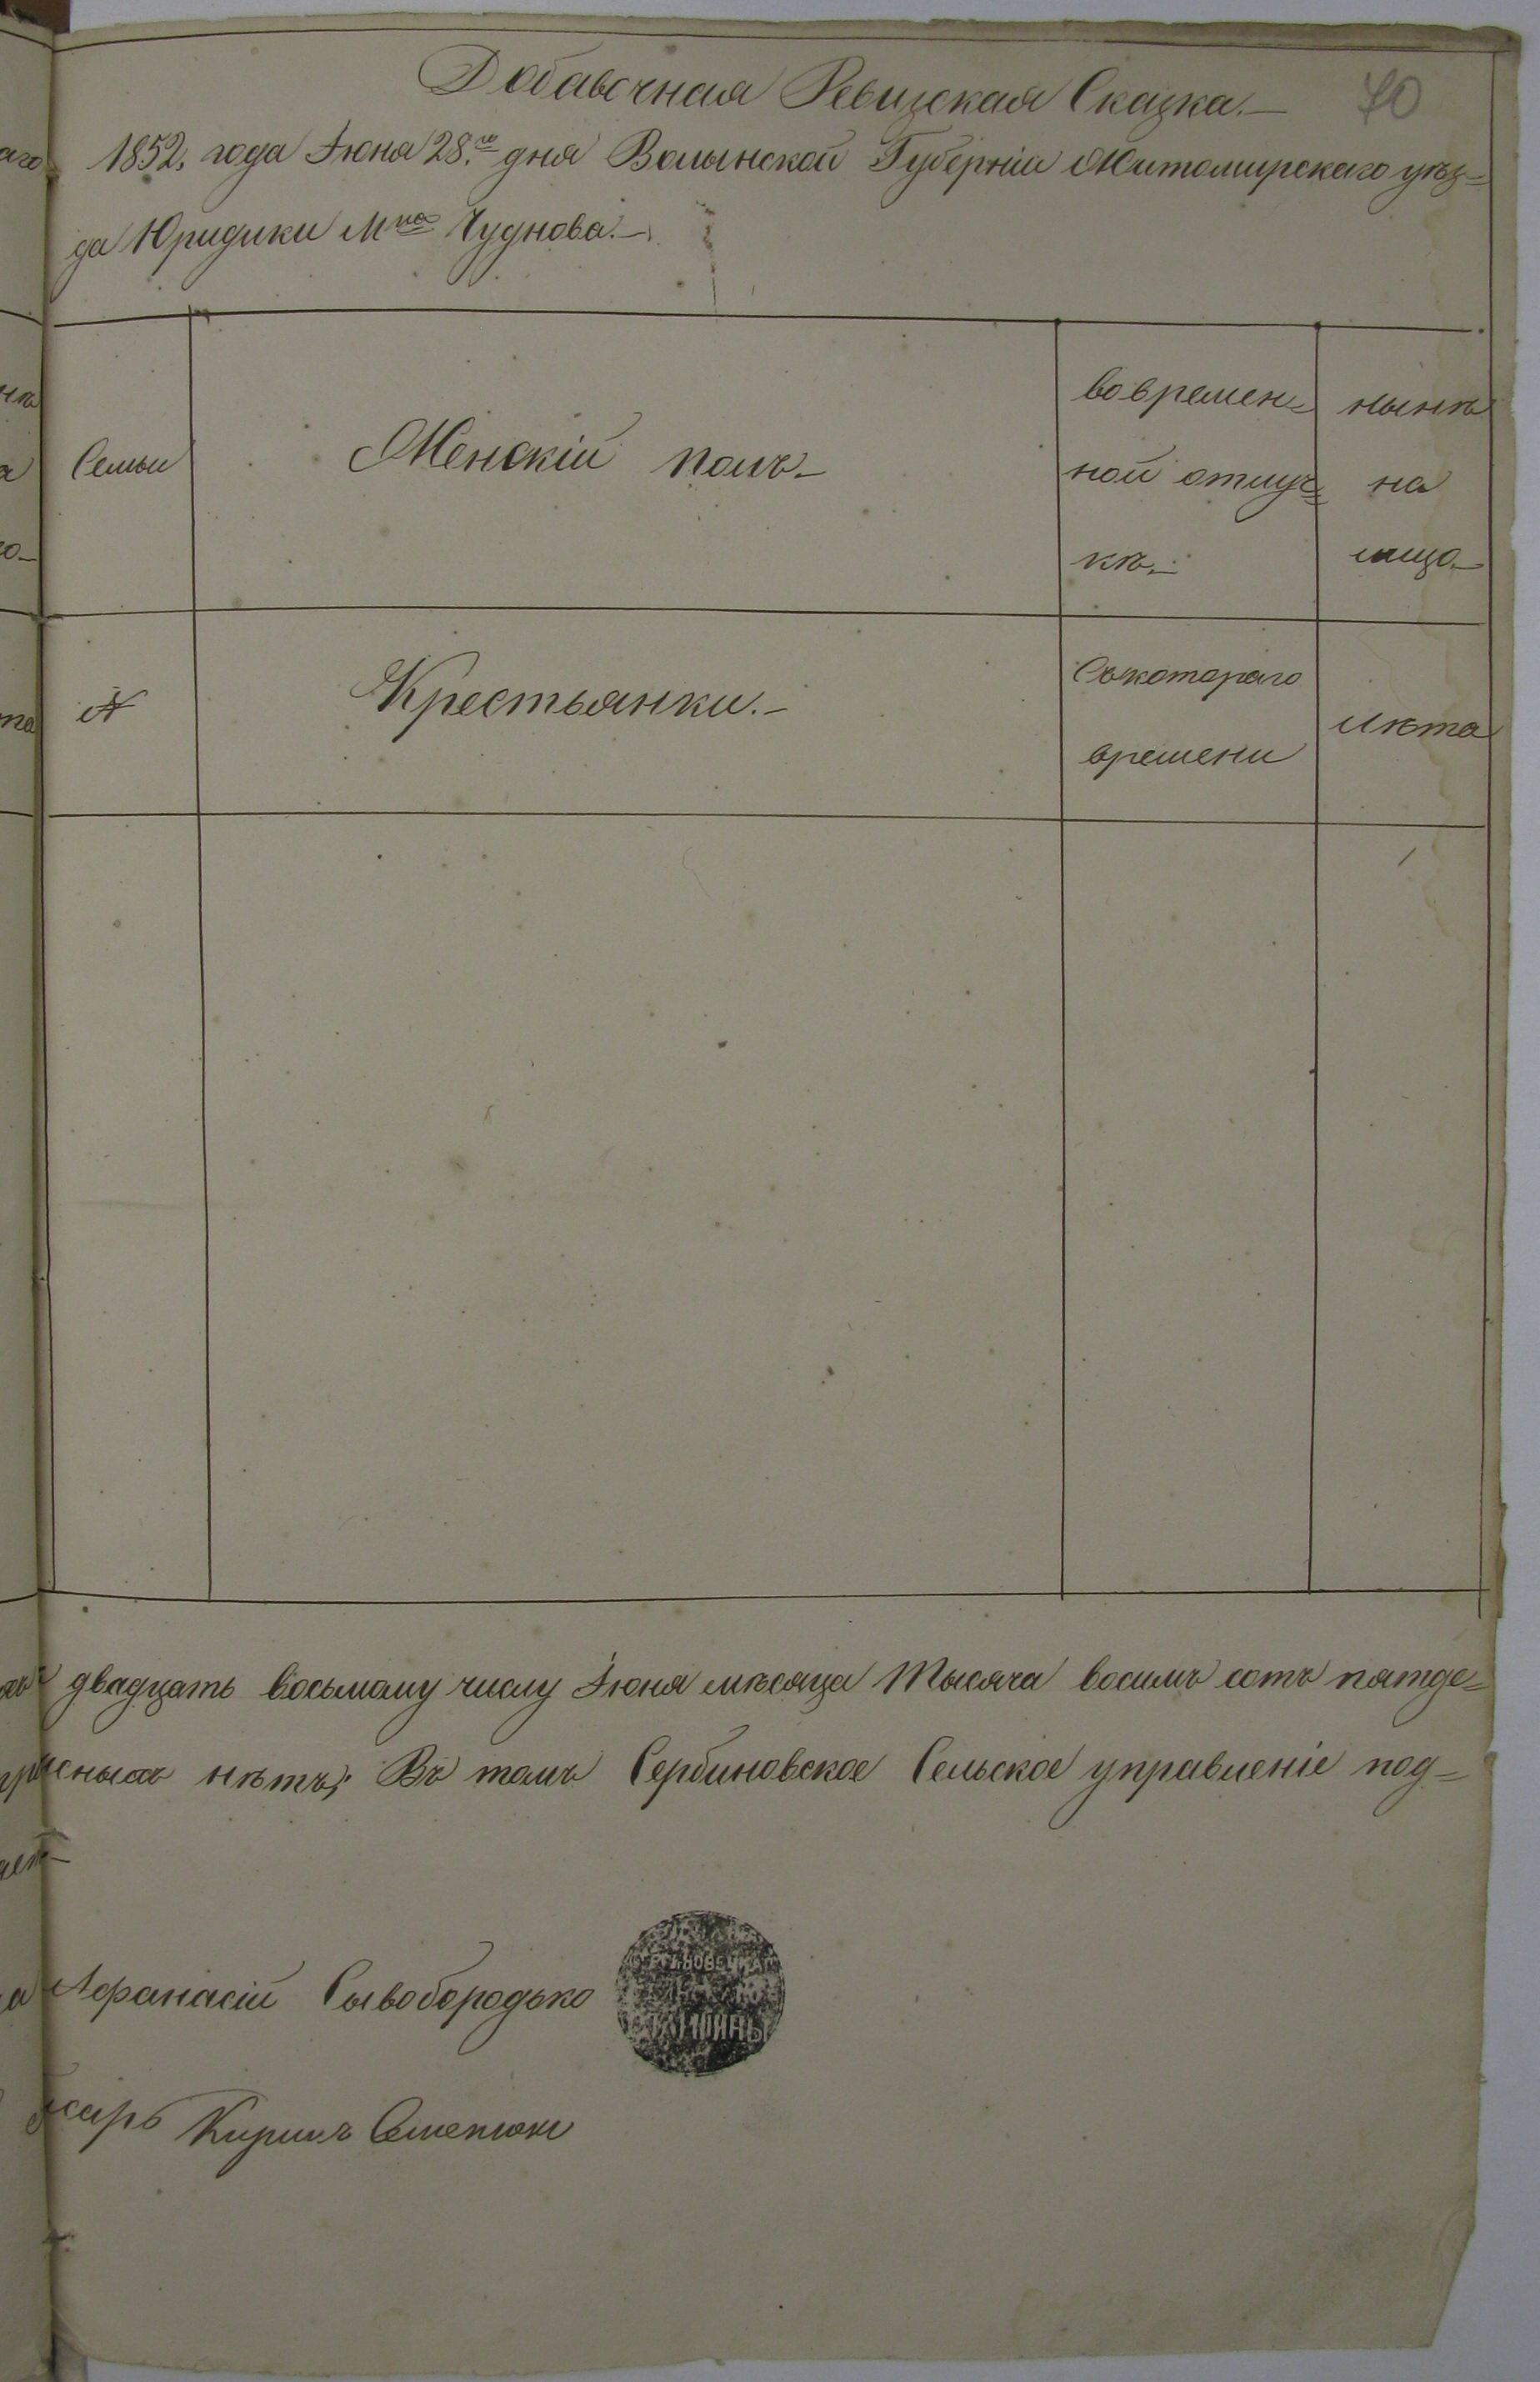 Добавочная Ревизская Сказка.— 70
1852. года Іюня 28.го дня Волынской Губерніи Житомирскаго уѣз=
да Юридики Мка Чуднова.—
Семьи
Женскій полъ.—
вовремен=
ной отлуч=
кѣ.—
нынѣ
на
лицо.—
№
Крестьянки.—
Съкотораго
времени
Лѣта
двадцать восьмому числу Іюня мѣсяца Тысяча восимъ сотъ пятде=
нѣтъ; Въ томъ Сербиновское Сельское управленіе под=
Афанасій Сывобородько
Кирилъ Семенюкъ